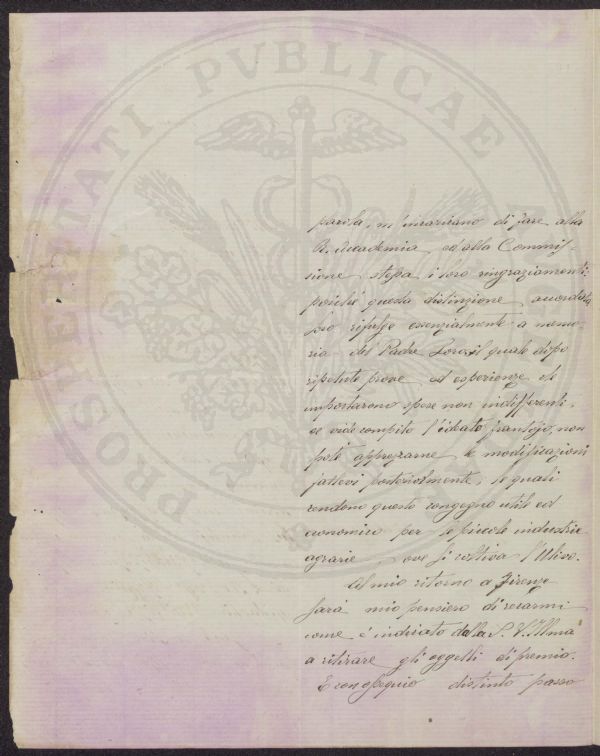 PROSPERITATI PVBLICAE
parola, m'incaricano di fare alla
R. Accademia, ed alla Commis-
sione stessa i loro ringraziamenti:
poichè questa distinzione accordata
loro rifulge essenzialmente a memo-
ria del Padre Loro il quale dopo
ripetute prove ed esperienze che
importarono spese non indifferenti,
se vide compito l'ideato frantojo, non
potè apprezzarne le modificazioni
fattevi posteriormente, le quali
rendono questo congegno utile ed
economico per le piccole industrie
agrarie, ove si coltiva l'Ulivo.
Al mio ritorno a Firenze
sarà mio pensiero di recarmi
come è indicato dalla S. V. Illma
a ritirare gli oggetti di premio.
E con ossequio distinto passo